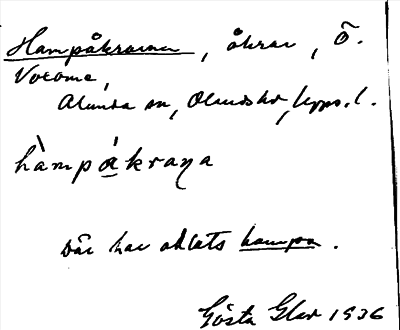 Hampåkrarna, åkrar, Ö.
Vorome,
Alunda sn, Olands hd, Upps. l.
hàmpákraɳa
Där har odlats hampa.
Gösta Glad 1936